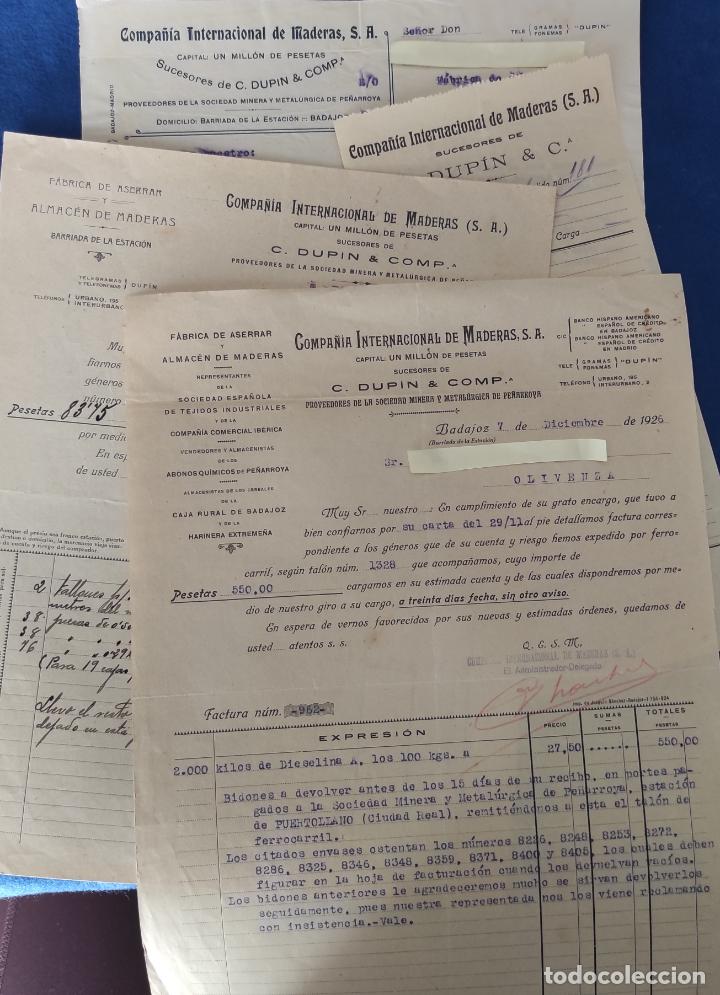 Compañía Internacional de Maderas, S. A.
CAPITAL: UN MILLÓN DE PESETAS
Sucesores de C. DUPIN & COMP.ª
PROVEEDORES DE LA SOCIEDAD MINERA Y METALÚRGICA DE PEÑARROYA
DOMICILIO: BARRIADA DE LA ESTACIÓN :-: BADAJOZ
BADAJOZ-MADRID
Señor Don
TELE GRAMAS FONEMAS "DUPIN"
Fábrica de
Compañía Internacional de Maderas (S. A.)
SUCESORES DE
DUPÍN & C.ª
núm. 181
Carga
FÁBRICA DE ASERRAR
Y
ALMACÉN DE MADERAS
BARRIADA DE LA ESTACIÓN
TELEGRAMAS Y TELEFONEMAS DUPIN
TELÉFONOS URBANO, 195 INTERURBANO
COMPAÑÍA INTERNACIONAL DE MADERAS (S. A.)
CAPITAL: UN MILLÓN DE PESETAS
SUCESORES DE
C. DUPIN & COMP.ª
PROVEEDORES DE LA SOCIEDAD MINERA Y METALÚRGICA DE PEÑARROYA
Mu
fiarnos
géneros
número
Pesetas 8375
por medi
En esp
de usted
2 tallones
metros
38 piezas de
38 " "
76 " "
(Para 19 cajas
Llevo el resto
dejado en esta
FÁBRICA DE ASERRAR
Y
ALMACÉN DE MADERAS
REPRESENTANTES
DE LA
SOCIEDAD ESPAÑOLA
DE TEJIDOS INDUSTRIALES
Y DE LA
COMPAÑÍA COMERCIAL IBÉRICA
VENDEDORES Y ALMACENISTAS
DE LOS
ABONOS QUÍMICOS DE PEÑARROYA
ALMACENISTAS DE LOS CEREALES
DE LA
CAJA RURAL DE BADAJOZ
Y DE LA
HARINERA EXTREMEÑA
COMPAÑÍA INTERNACIONAL DE MADERAS, S. A.
CAPITAL: UN MILLÓN DE PESETAS
SUCESORES DE
C. DUPIN & COMP.ª
PROVEEDORES DE LA SOCIEDAD MINERA Y METALÚRGICA DE PEÑARROYA
C/C BANCO HISPANO AMERICANO
" ESPAÑOL DE CRÉDITO
EN BADAJOZ
BANCO HISPANO AMERICANO
" ESPAÑOL DE CRÉDITO
EN MADRID
TELE GRAMAS FONEMAS "DUPIN"
TELÉFONO URBANO, 195 INTERURBANO, 2
Badajoz 7 de Diciembre de 1926
(Barriada de la Estación)
Sr.
OLIVENZA
Muy Sr nuestro : En cumplimiento de su grato encargo, que tuvo a
bien confiarnos por su carta del 29/11 al pie detallamos factura corres-
pondiente a los géneros que de su cuenta y riesgo hemos expedido por ferro-
carril, según talón núm. 1328 que acompañamos, cuyo importe de
Pesetas 550,00 cargamos en su estimada cuenta y de las cuales dispondremos por me-
dio de nuestro giro a su cargo, a treinta días fecha, sin otro aviso.
En espera de vernos favorecidos por sus nuevas y estimadas órdenes, quedamos de
usted atentos s. s.
Q. E. S. M.,
INTERNACIONAL DE MADERAS (S. A.)
El Administrador-Delegado
Factura núm. -962-
EXPRESIÓN PRECIO SUMAS PESETAS TOTALES PESETAS
2.000 kilos de Dieselina A, los 100 kgs. a 27,50 ...... 550,00
Bidones a devolver antes de los 15 días de su recibo, en portes pa-
gados a la Sociedad Minera y Metalúrgica de Peñarroya, estación
de PUERTOLLANO (Ciudad Real), remitiéndonos a esta el talón de
ferrocarril.
Los citados envases ostentan los números 8226, 8248, 8253, 8272,
8286, 8325, 8346, 8348, 8359, 8371, 8400 y 8405, los cuales deben
figurar en la hoja de facturación cuando los devuelvan vacíos.
Los bidones anteriores le agradeceremos mucho se sirvan devolverlos
seguidamente, pues nuestra representada nos los viene reclamando
con insistencia.-Vale.
todocoleccion